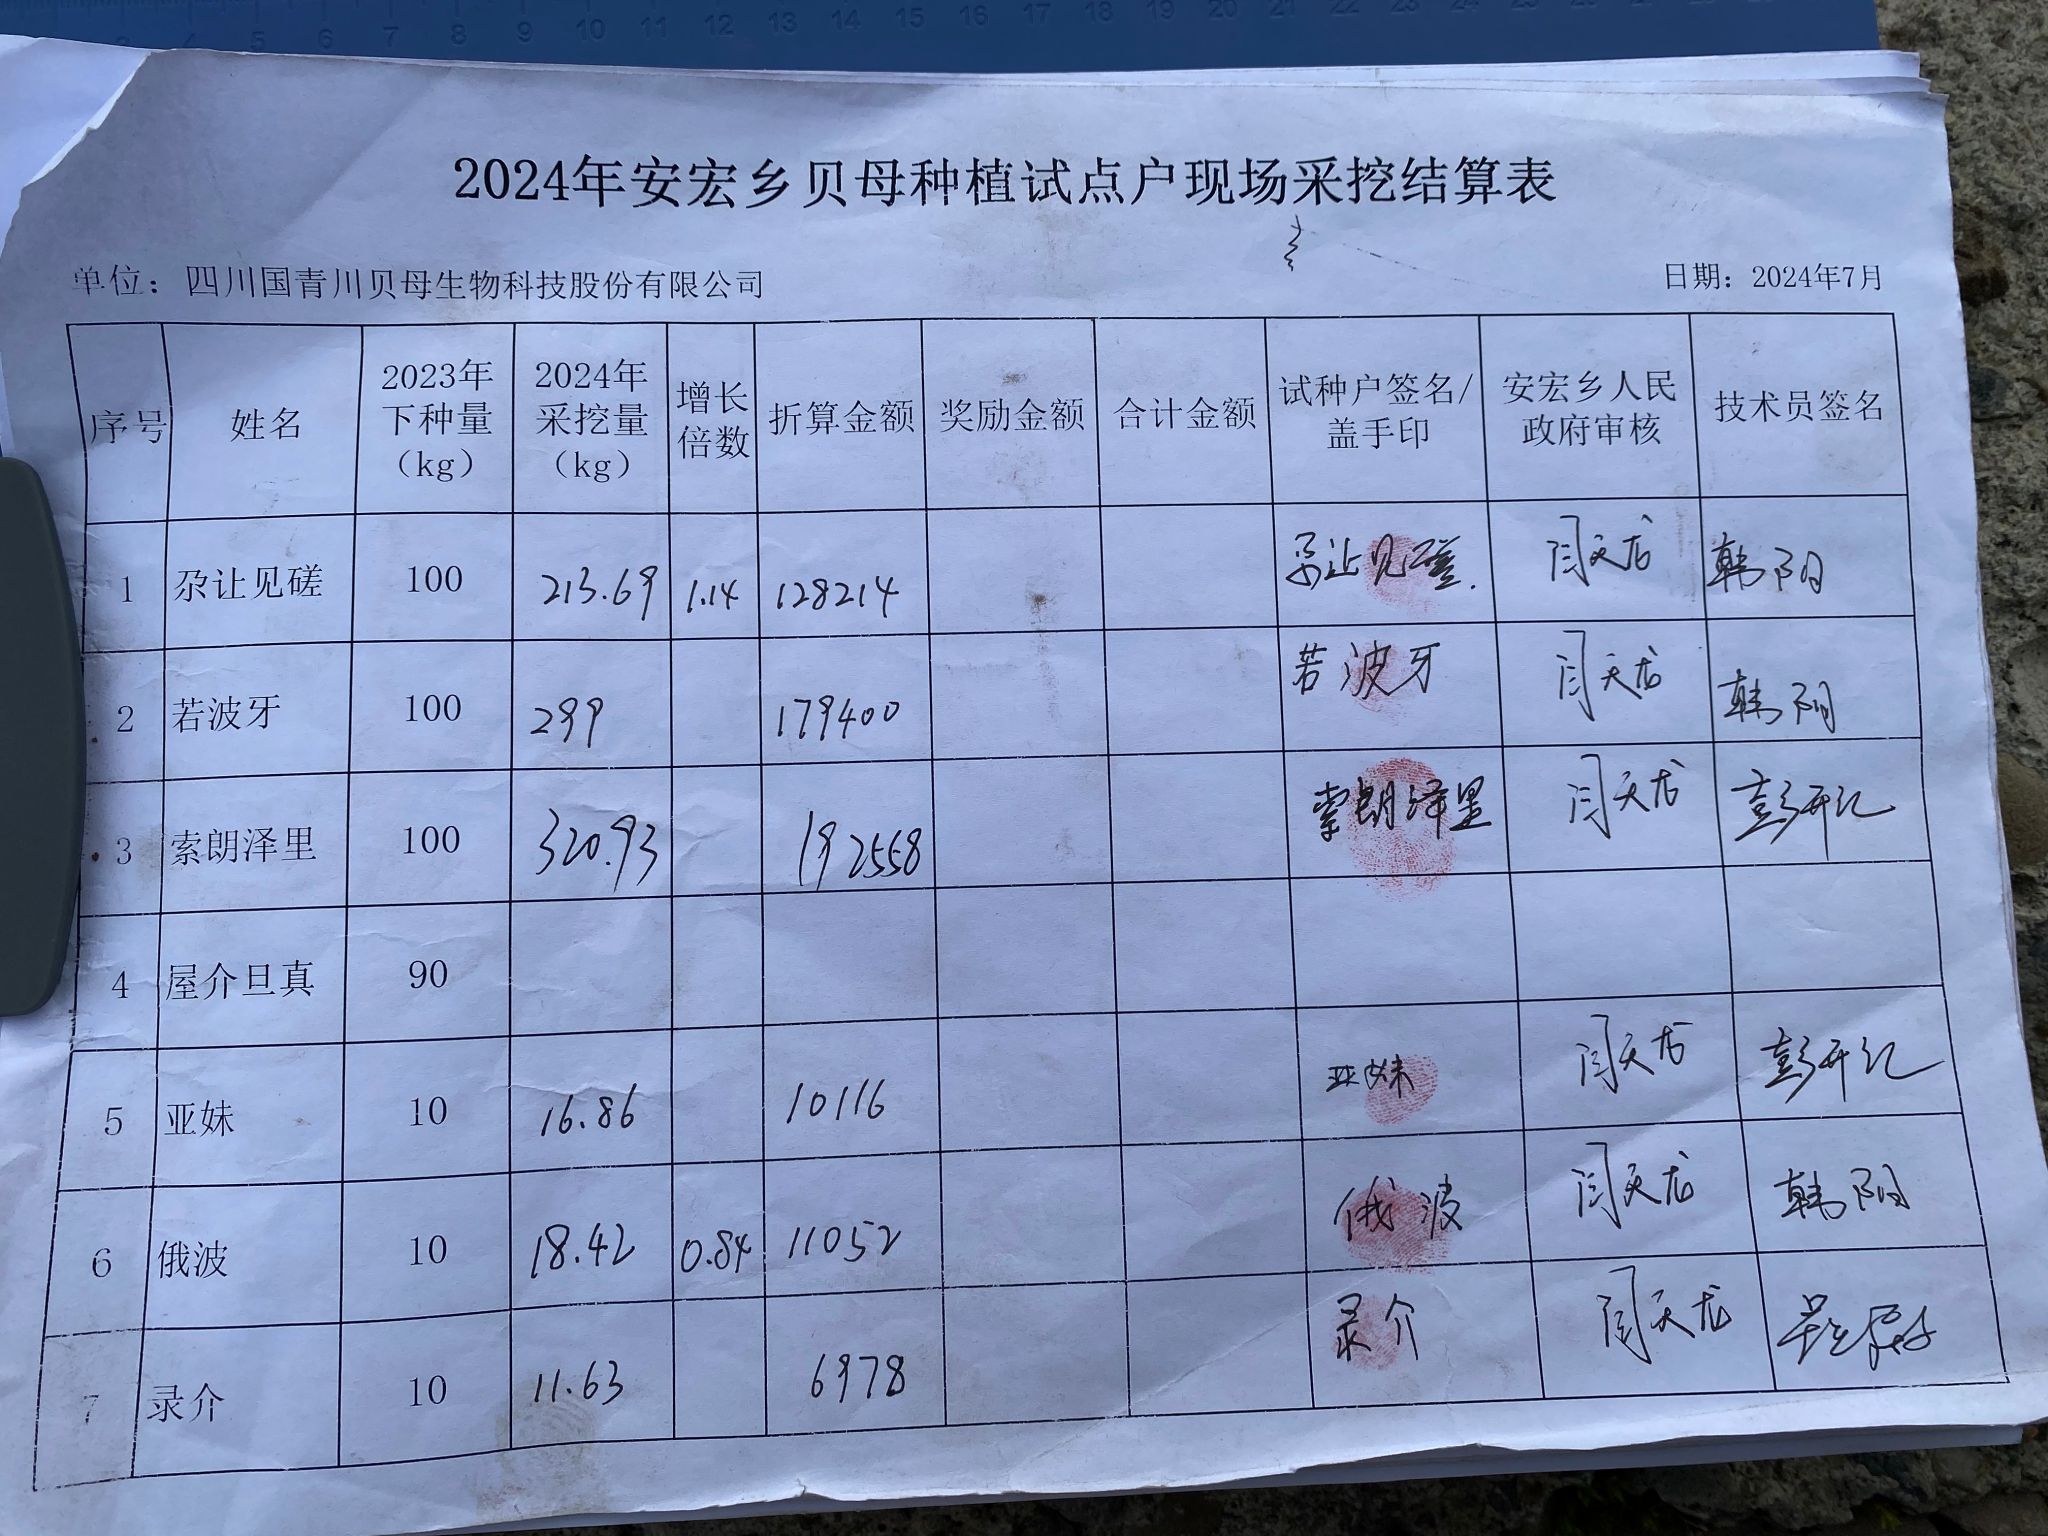 2024年安宏乡贝母种植试点户现场采挖结算表
单位：四川国青川贝母生物科技股份有限公司 日期：2024年7月
序号 姓名 2023年下种量（kg） 2024年采挖量（kg） 增长倍数 折算金额 奖励金额 合计金额 试种户签名/盖手印 安宏乡人民政府审核 技术员签名
1 尕让见磋 100 213.69 1.14 128214 尕让见磋 闫天龙 韩阳
2 若波牙 100 299 179400 若波牙 闫天龙 韩阳
3 索朗泽里 100 320.93 192558 索朗泽里 闫天龙 彭开红
4 屋介旦真 90
5 亚妹 10 16.86 10116 亚妹 闫天龙 彭开红
6 俄波 10 18.42 0.84 11052 俄波 闫天龙 韩阳
7 录介 10 11.63 6978 录介 闫天龙